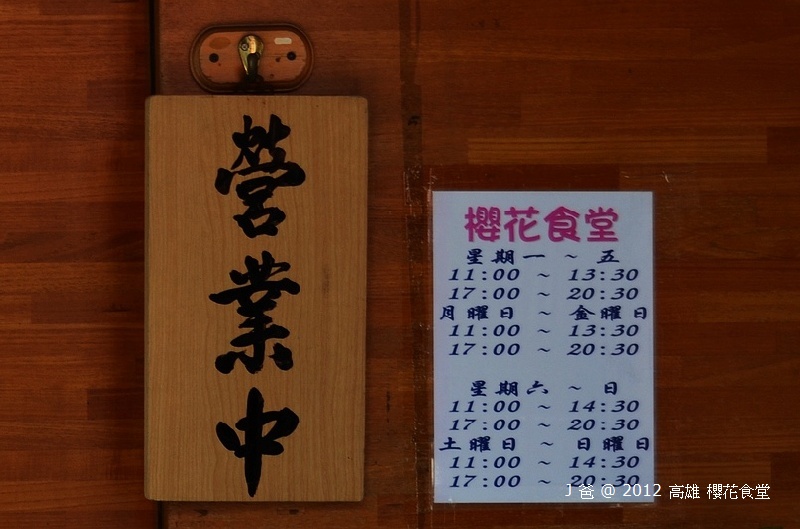 營業中
櫻花食堂
星期一 ~ 五
11:00 ~ 13:30
17:00 ~ 20:30
月曜日 ~ 金曜日
11:00 ~ 13:30
17:00 ~ 20:30
星期六 ~ 日
11:00 ~ 14:30
17:00 ~ 20:30
土曜日 ~ 日曜日
11:00 ~ 14:30
17:00 ~ 20:30
J 爸 @ 2012 高雄 櫻花食堂